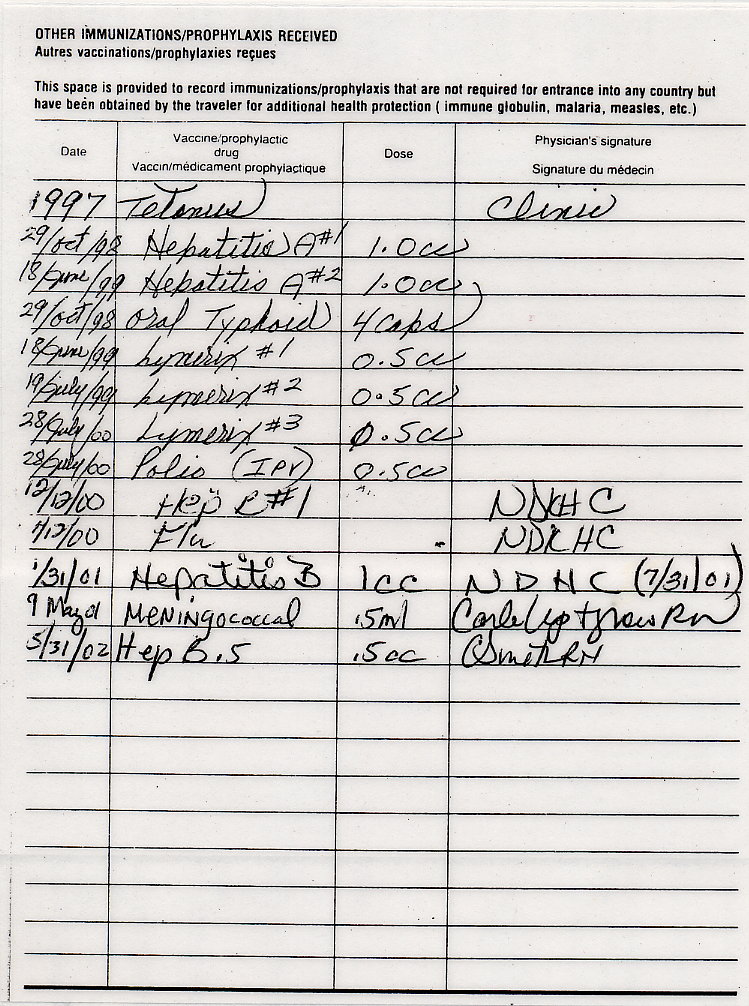 OTHER IMMUNIZATIONS/PROPHYLAXIS RECEIVED
Autres vaccinations/prophylaxies reçues
This space is provided to record immunizations/prophylaxis that are not required for entrance into any country but
have been obtained by the traveler for additional health protection ( immune globulin, malaria, measles, etc.)
Date Vaccine/prophylactic drug Vaccin/médicament prophylactique Dose Physician's signature Signature du médecin
1997 Tetanus Clinic
29/Oct/98 Hepatitis A #1 1.0cc
18/June/99 Hepatitis A #2 1.0cc
29/Oct/98 Oral Typhoid 4 caps
18/June/99 Lymerix #1 0.5cc
19/July/99 Lymerix #2 0.5cc
28/July/00 Lymerix #3 0.5cc
28/July/00 Polio (IPV) 0.5cc
12/12/00 Hep B #1 NDKHC
/12/00 Flu NDKHC
1/31/01 Hepatitis B 1cc NDHC (7/31/01)
9 May 01 Meningococcal .5ml RN
5/31/02 Hep B .5 .5cc RN